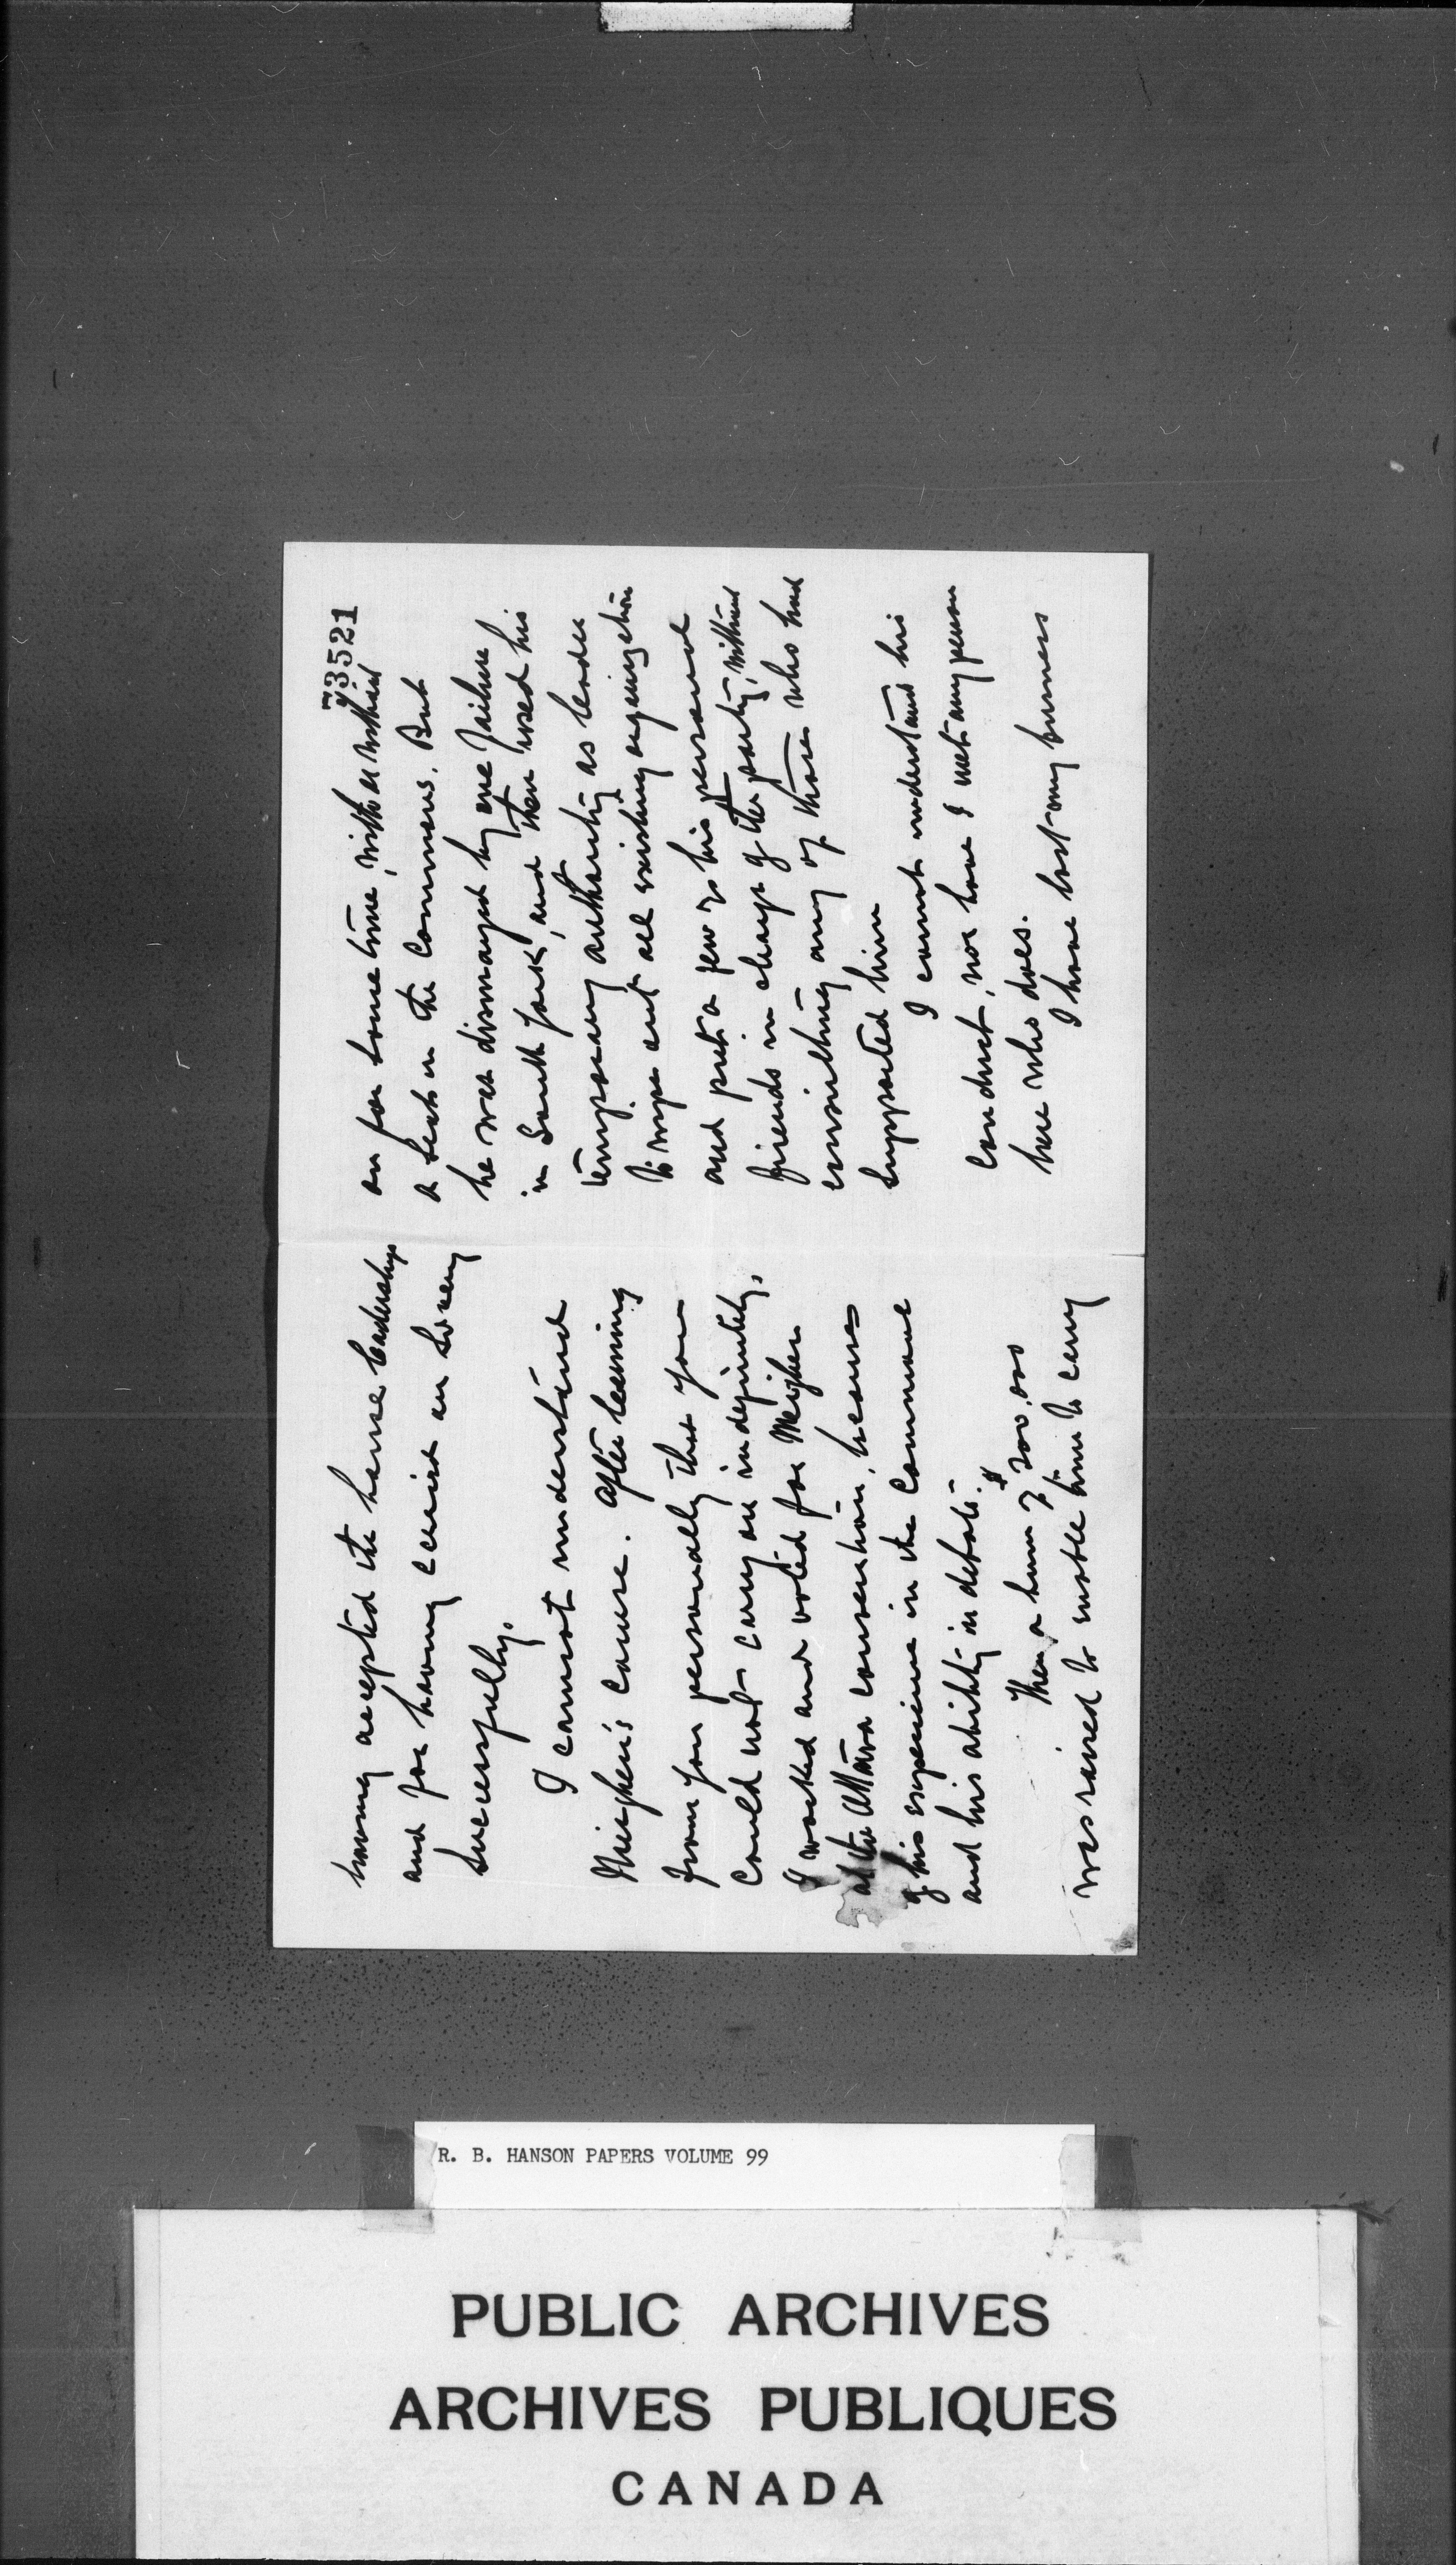 having accepted the house leadership
and for having carried on so very
successfully.
I cannot understand
Meighen's course. After learning
from you personally that you
could not carry on indefinitely,
I worked and voted for Meighen
at the Ottawa convention, because
of his experience in the Commons
and his ability in debate.
Then a sum of $200,000
was raised to enable him to carry
73521
on for some time, with or without
a seat in the Commons. But
he was dismayed by one failure
in South York, and then used his
temporary authority as leader
to wipe out all existing organization
and put a few of his personal
friends in charge of the party, without
consulting any of those who had
supported him
I cannot understand his
conduct, nor have I met any person
here who does.
I have lost my
R. B. HANSON PAPERS VOLUME 99
PUBLIC ARCHIVES
ARCHIVES PUBLIQUES
CANADA